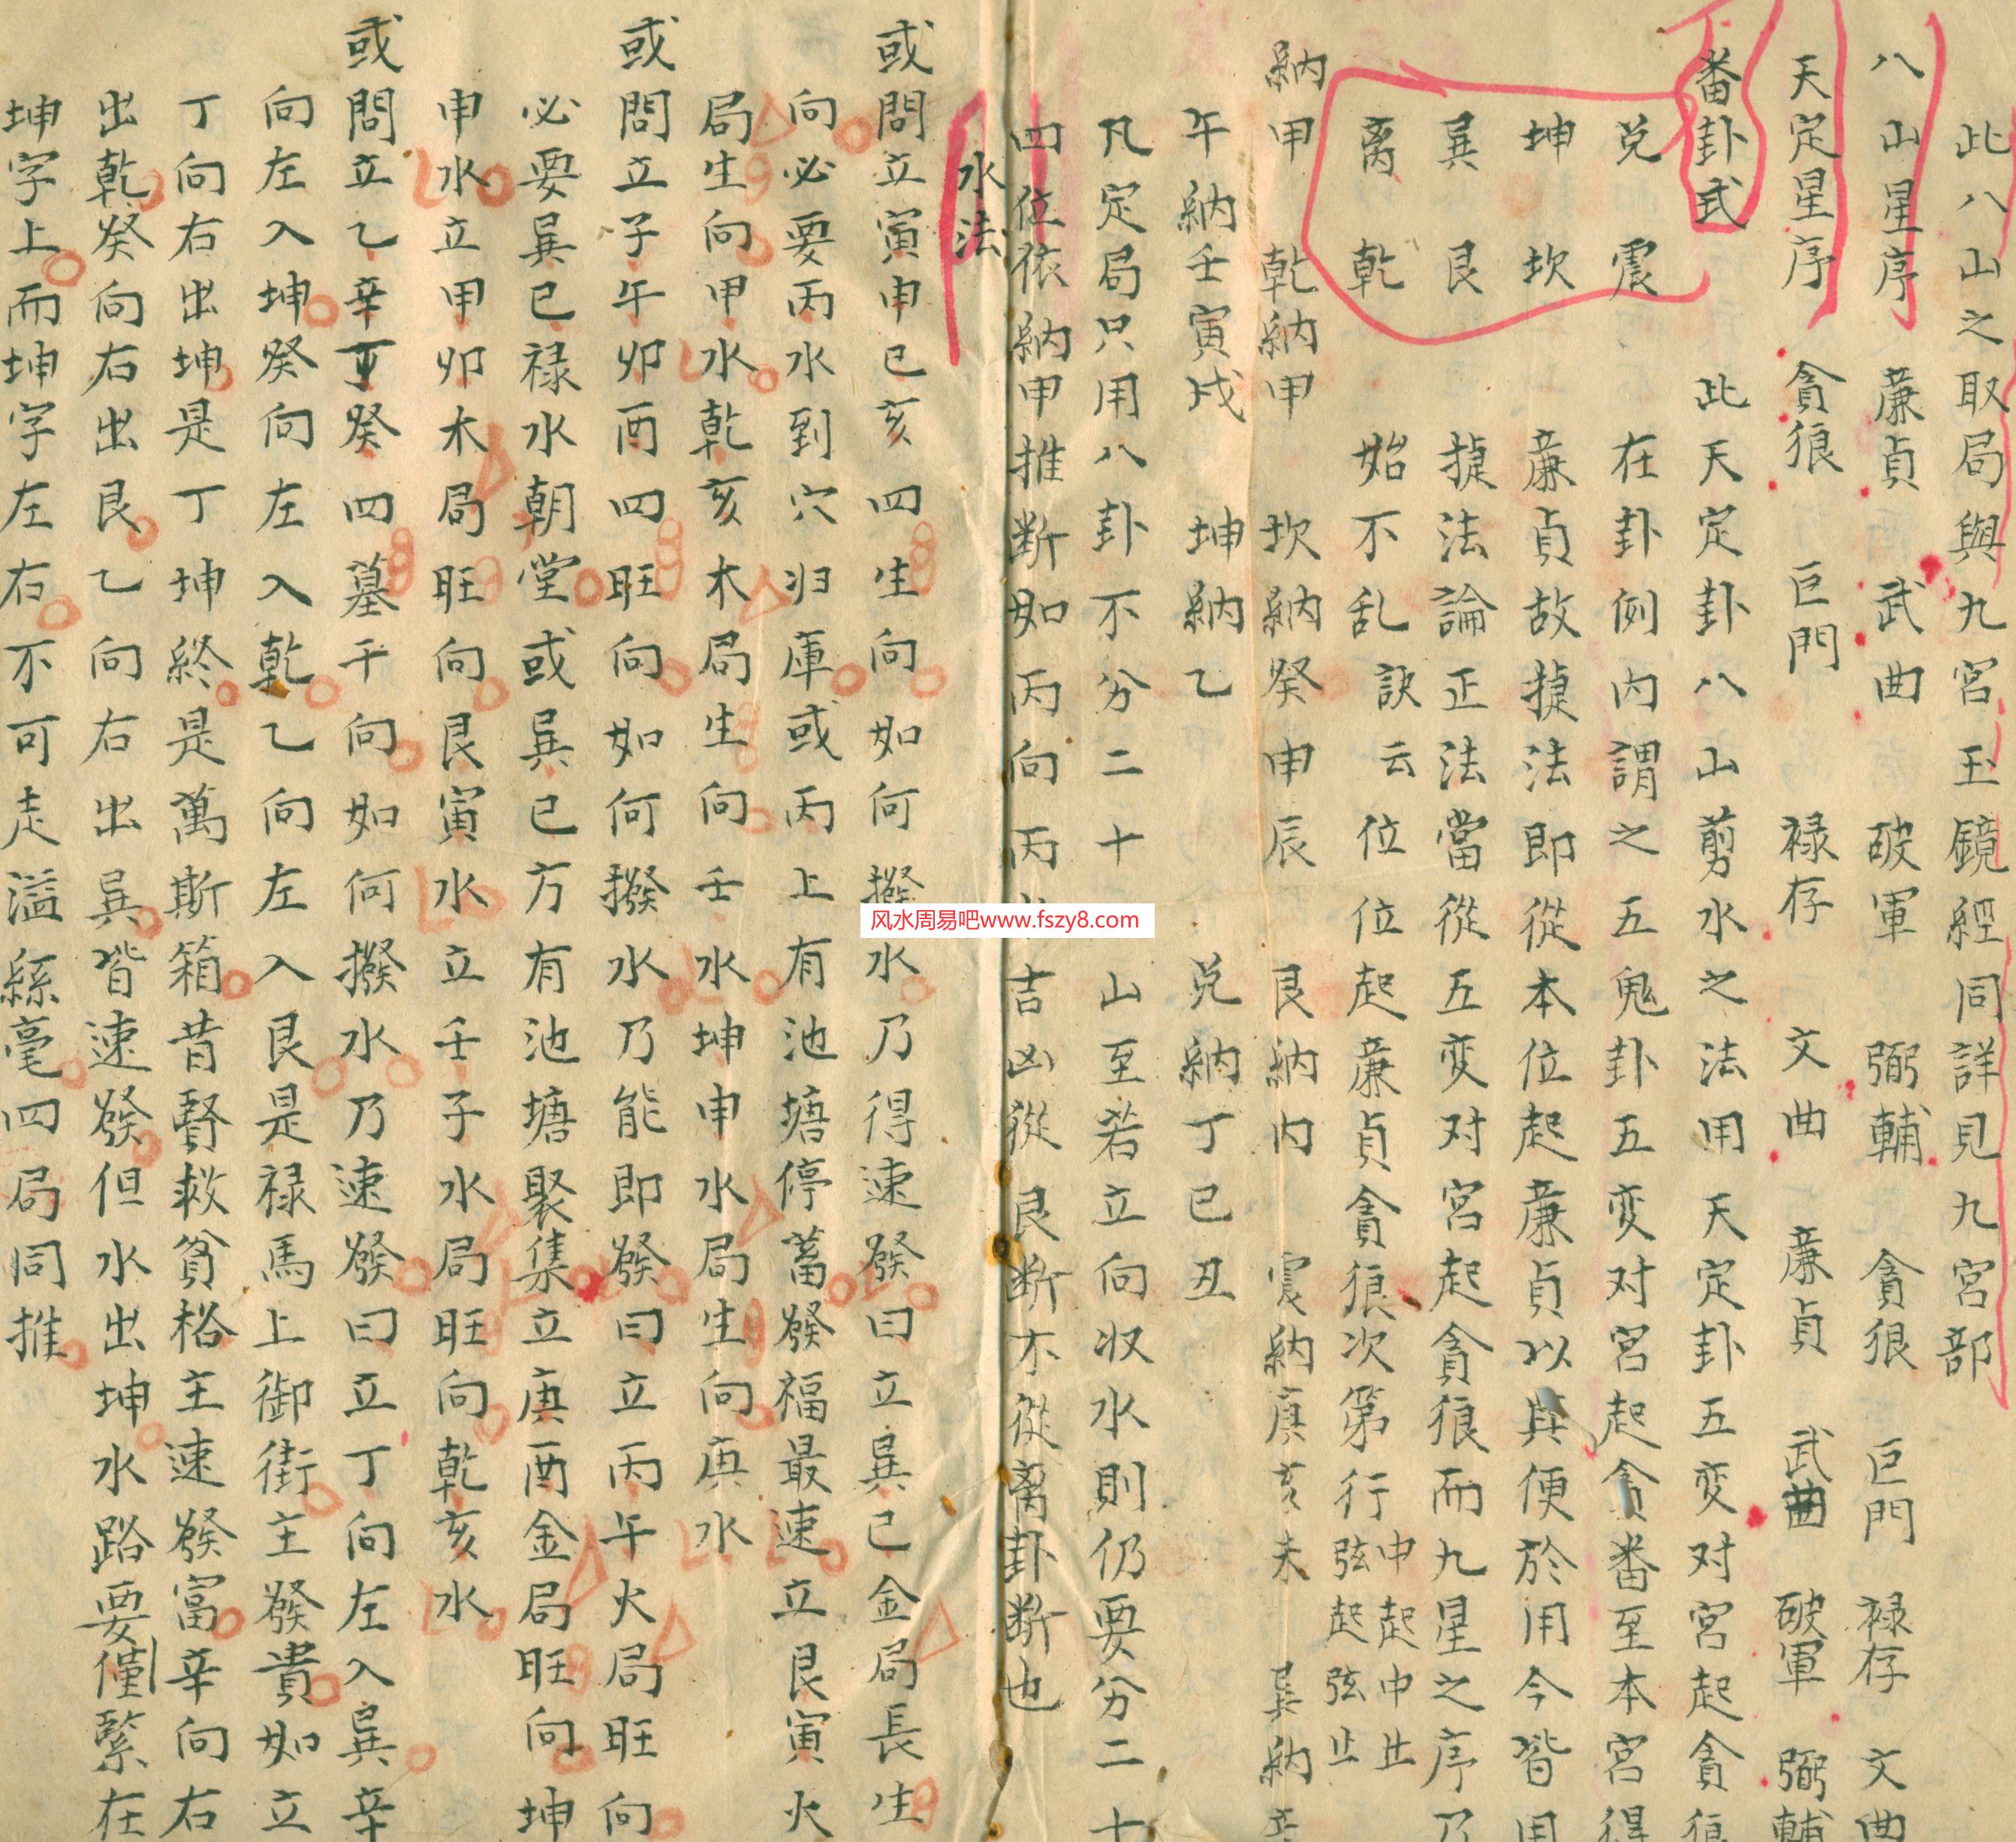 此八山之取局與九宮玉鏡經同詳見九宮部
八山星序 廉貞 武曲 破軍 弼輔 貪狼 巨門 祿存 文曲
天定星序 貪狼 巨門 祿存 文曲 廉貞 武曲 破軍 弼輔
番卦式 此天定卦八山剪水之法用天定卦五变对宮起貪狼
兑震 在卦例内謂之五鬼卦五变对宮起貪番至本宮得
坤坎 廉貞故㨗法即從本位起廉貞以具便於用今皆用
巽艮 㨗法論正法當從五变对宮起貪狼而九星之序乃
离乾 始不乱 訣云 位位起廉貞貪狼次第行 中起中止 弦起弦止
納甲 乾納甲 坎納癸申辰 艮納丙 震納庚亥未 巽納辛
午納壬寅戌 坤納乙 兑納丁巳丑
凡定局只用八卦不分二十 山至若立向收水則仍要分二十
四位依納甲推断如丙向丙 吉凶從艮断不從离卦断也
水法
或問立寅申巳亥四生向如何撥水乃得速發曰立巽巳金局長生
向必要丙水到穴归庫或丙上有池塘停蓄發福最速立艮寅火
局生向甲水乾亥木局生向壬水坤申水局生向庚水
或問立子午卯酉四旺向如何撥水乃能即發曰立丙午火局旺向
必要巽巳禄水朝堂或巽巳方有池塘聚集立庚酉金局旺向坤
申水立甲卯木局旺向艮寅水立壬子水局旺向乾亥水
或問立乙辛丁癸四墓千向如何撥水乃速發曰立丁向左入巽辛
向左入坤癸向左入乾乙向左入艮是禄馬上御街主發貴如立
丁向右出坤是丁坤終是萬斯箱昔賢救貧格主速發富辛向右
出乾癸向右出艮乙向右出巽皆速發但水出坤水路要僅緊在
坤字上而坤字左右不可走溢絲毫四局同推
风水周易吧www.fszy8.com